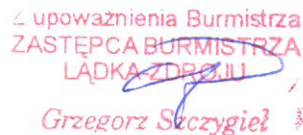 Z upoważnienia Burmistrza
ZASTĘPCA BURMISTRZA
LĄDKA-ZDROJU
Grzegorz Szczygieł